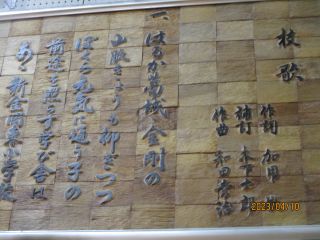 校歌
作詞 加用
補訂 木下
作曲 和田
一、はるか葛城金剛の
山脈きよらを仰ぎつつ
ぼくら元気に通う子の
前途を照らす学び舎は
あゝ新金岡東小学校
2023/04/10